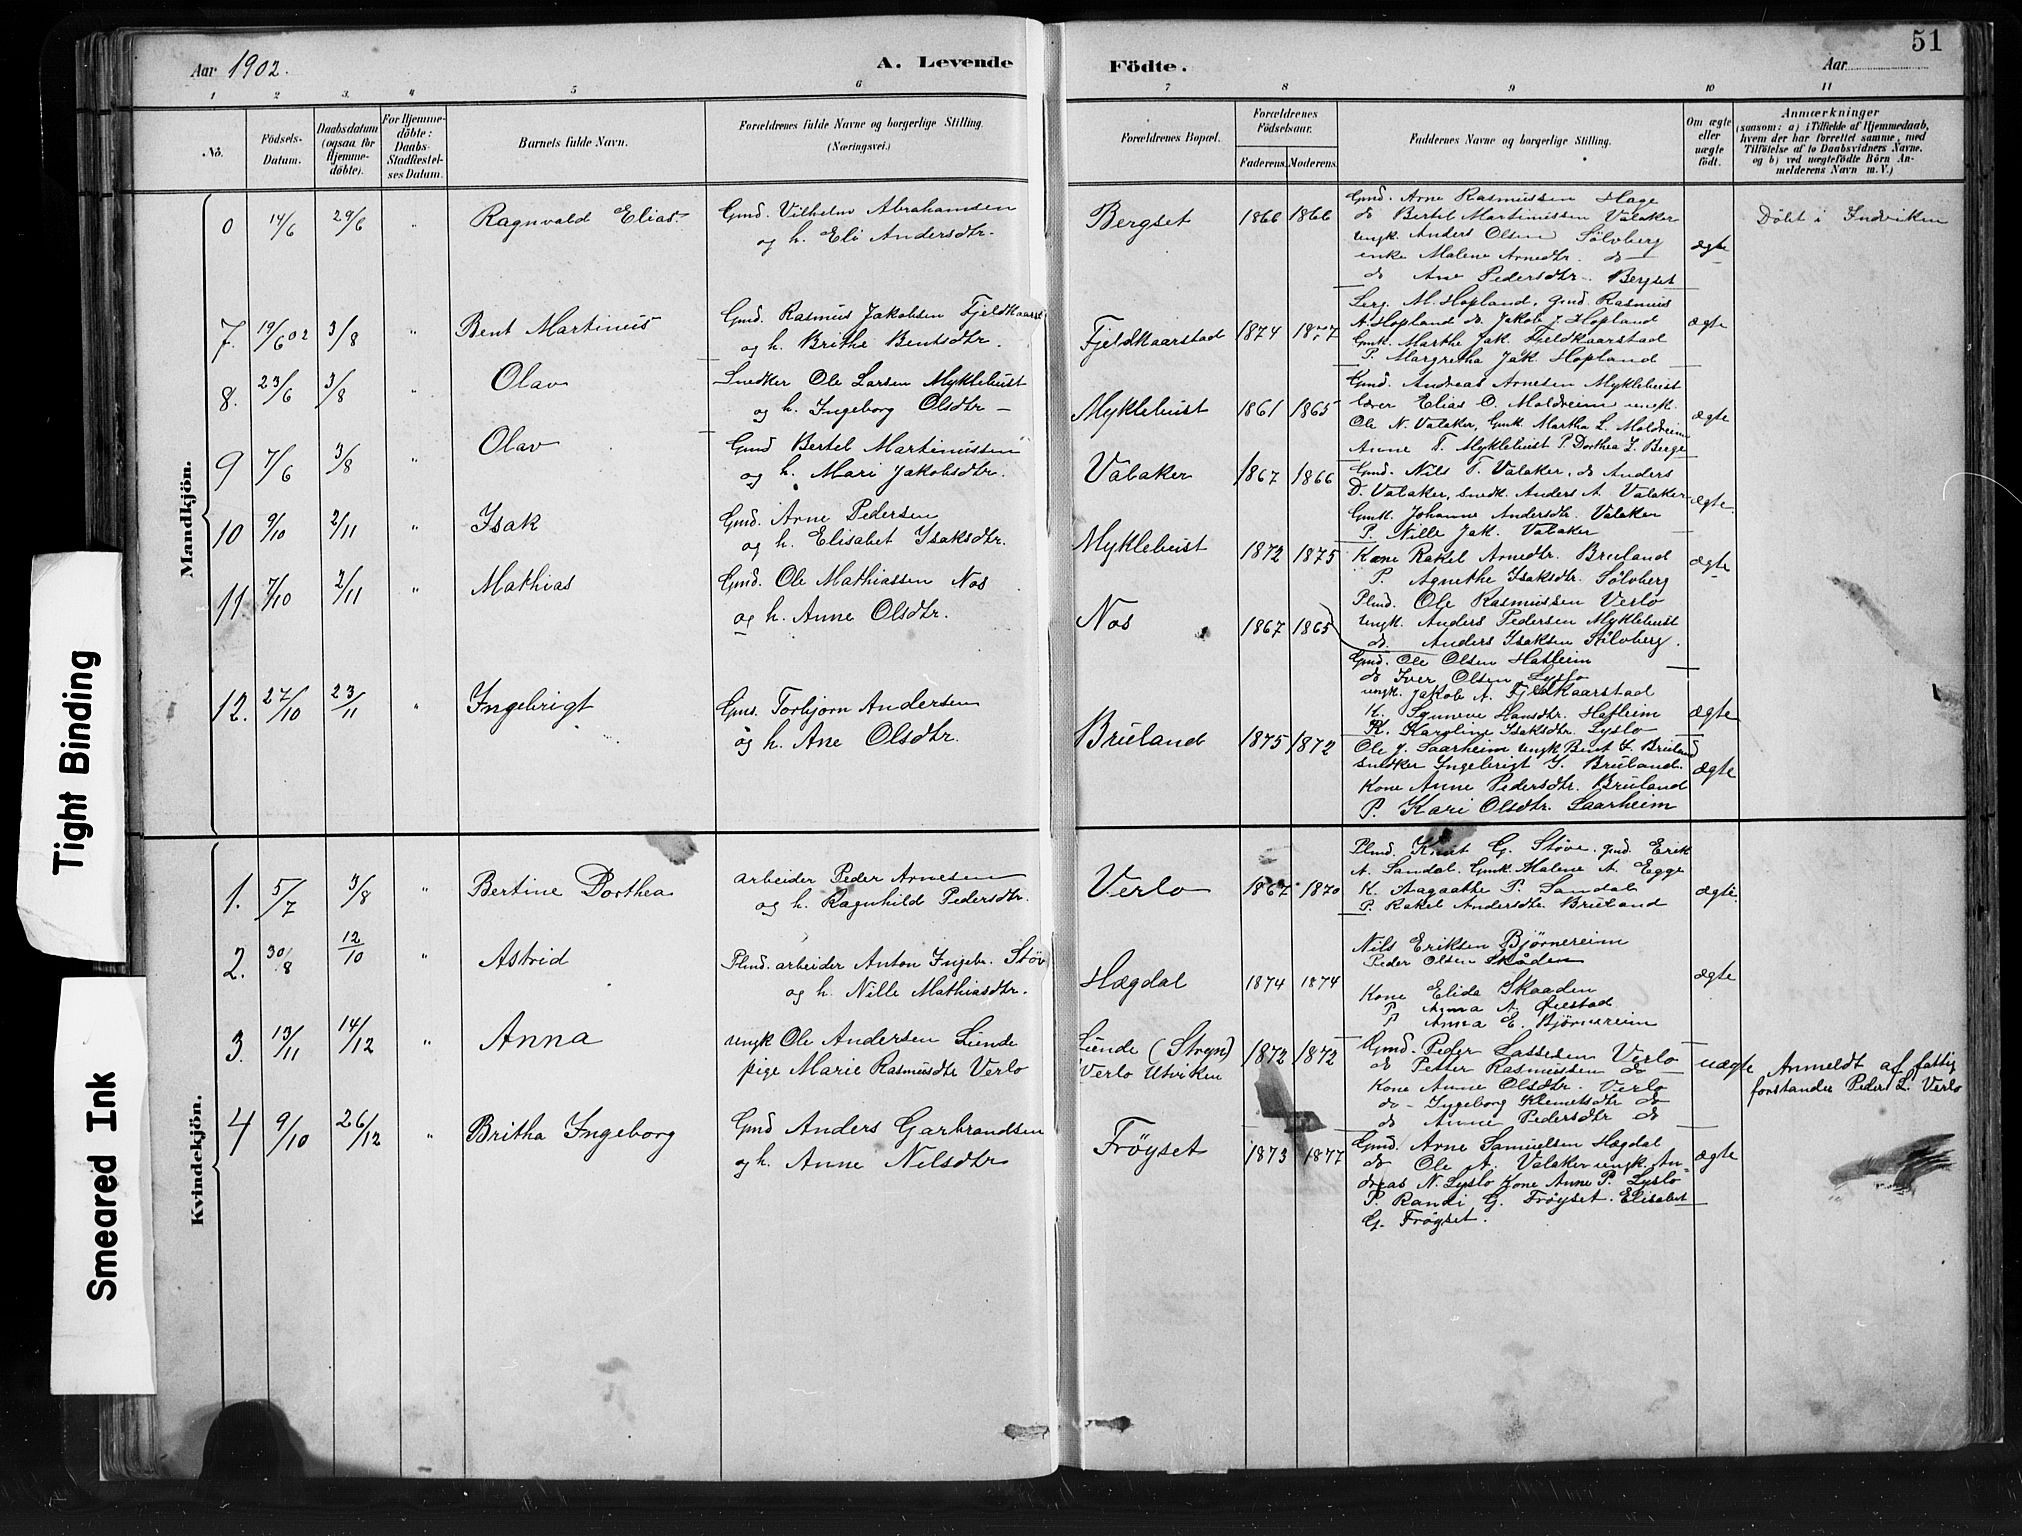 Aar 1902.
A. Levende
Födte.
Aar
51
1 2 3. 4 5 6 7 8 9 10 11
No.
Födsels-Datum.
Daabsdatum (ogsaa for Hjemmedöbte).
For Hjemmedöbte: Daabs-Stadfestelses Datum.
Barnets fulde Navn.
Forældrenes fulde Navne og borgerlige Stilling.
(Næringsvei.)
Forældrenes Bopæl.
Forældrenes Födselsaar.
Faderens. Moderens.
Faddernes Navne og borgerlige Stilling.
Om ægte eller uægte födt.
Anmærkninger
(saasom: a) i Tilfælde af Hjemmedaab,
hvem der har forrettet samme, med
Tilföielse af to Daabsvidners Navne.
og b) ved uægtefödte Börn An-
melderens Navn m.V.)
Mandkjön.
0 14/6 29/6 " Ragnvald Elias
Gmd. Vilhelm Abrahamsen
og h. Eli Andersdtr.
Bergset 1866 1866
Gmd. Arne Rasmussen Hage
do Bertel Martinussen Valaker
ungk. Anders Olsen Sölvberg
enke Malene Arnedtr. do
do Ane Pedersdtr. Bergset
ægte
Döbt i Indviken
7. 19/6 02 3/8 " Bent Martinus
Gmd. Rasmus Jakobsen Fjeldkaarst
og h. Brithe Bentsdtr.
Fjeldkaarstad 1874 1877
Serg. M. Hopland, gmd. Rasmus
A. Hopland do. Jakob J. Hopland
Gmk. Marthe Jak. Fjeldkaarstad
P. Margretha Jak. Hopland
ægte
8. 23/6 3/8 Olav
Snedker Ole Larsen Myklebust
og h. Ingeborg Olsdtr
Myklebust 1861 1865
Gmd. Andreas Arnesen Myklebust
lærer Elias O. Moldreim ungk.
Ole N. Valaker, Gmk. Martha L. Moldreim
Anne T. Myklebust P. Dorthea L. Berge
ægte
9 7/6 3/8 " Olav
Gmd Bertel Martinussen
og h. Mari Jakobsdtr.
Valaker 1867 1866
Gmd. Nils T. Valaker, do Anders
D. Valaker, snedk. Anders A. Valaker
Gmk. Johanne Andersdtr. Valaker
P. Nille Jak. Valaker
ægte.
10 9/10 2/11 " Isak
Gmd. Arne Pedersen
og h. Elisabet Isaksdtr.
Myklebust 1872 1875
Kone Rakel Arnedtr. Bruland
P. Agnethe Isaksdtr. Sölvberg
Plmd. Ole Rasmussen Verlo
ungk. Anders Pedersen Myklebust
do. Anders Isaksen Sölvberg.
ægte
11 7/10 2/11 " Mathias
Gmd. Ole Mathiassen Nos
og h. Anne Olsdtr.
Nos 1867 1865
Gmd. Ole Olsen Hafleim
do Iver Olsen Lyslo
ungk. Jakob A. Fjeldkaarstad
K. Synneve Hansdtr. Hefleim
P. Karoline Isaksdtr. Lyslo
ægte
12. 27/10 23/11 " Ingebrigt
Gms. Torbjørn Andersen
og h. Ane Olsdtr.
Bruland 1875 1872
Ole J. Saarheim ungk Bent I. Bruland
snedker Ingebrigt I. Bruland.
Kone Anne Pedersdtr. Bruland
P. Kari Olsdtr. Saarheim
ægte
Kvindekjön.
1. 5/7 3/8 " Bertine Dorthea
arbeider Peder Arnesen
og h. Ragnhild Pedersdtr.
Verlo 1867 1870
Plmd. Knut G. Støve. gmd. Erik
A. Sandal. Gmk Malene A. Egge
K. Aagaathe P. Sandal
P. Rakel Andersdtr. Bruland
ægte.
2. 30/8 12/10 " Astrid
Plmd. arbeider Anton Ingebr. Støv
og h. Nille Mathiasdtr.
Hægdal 1874 1874
Nils Eriksen Bjørnereim
Peder Olsen Skåden
Kone Elida Skaaden
P Anna A. Øvestad
P Anna E. Bjørnereim
ægte
3. 13/11 14/12 " Anna
ungk Ole Andersen Lunde
pige Marie Rasmusdtr Verlo
Lunde (Stryn)
Verlo Utviken
1872 1872
Gmd. Peder Lassesen Verlo
do Petter Rasmussen do
Kone Anne Olsdtr. Verlo
do - Ingeborg Klemetsdtr do
do Anne Pedersdtr do
uægte
Anmeldt af fattig
forstander Peder L. Verlo
4 9/10 26/12 " Britha Ingeborg
Gmd Anders Garbrandsen
og h. Anne Nilsdtr
Frøyset 1873 1877
Gmd. Arne Samuelsen Hægdal
do Ole A. Valaker ungk. An-
dreas N. Lyslo Kone Anne P. Lyslo
P. Randi G. Frøyset. Elisabet
G. Frøyset.
ægte
Tight Binding
Smeared Ink